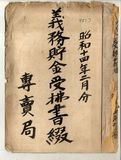 昭和十四年二月分
義務貯金受拂書綴
專賣局